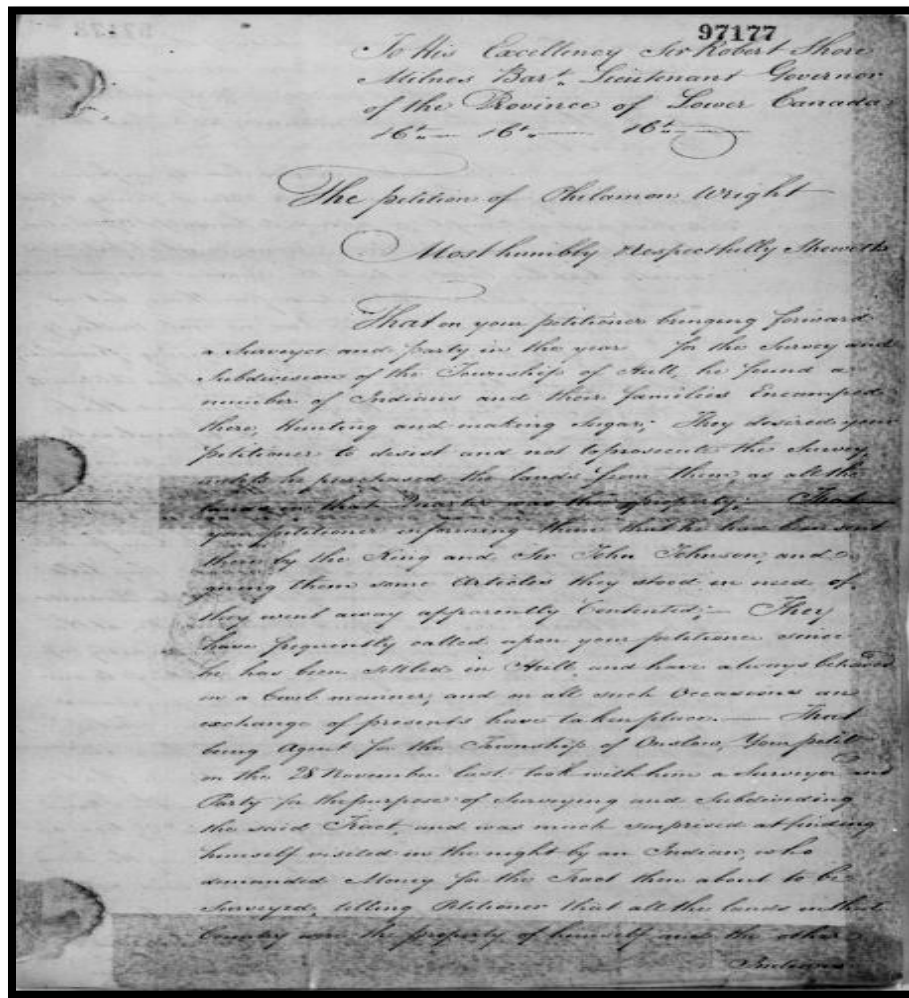 97177
To His Excellency Sir Robert Shore
Milnes Bart. Lieutenant Governor
of the Province of Lower Canada
&c &c &c
The petition of Philamon Wright
Most humbly & Respectfully Sheweth
That on your petitioner bringing forward
a Surveyor and party in the year for the Survey and
Subdivision of the Township of Hull, he found a
number of Indians and their families Encamped
there, Hunting and making Sugar; They desired your
petitioner to desist and not to prosecute the Survey
until he purchased the lands from them, as all the
lands in that Quarter was their property; That
your petitioner informing them that he had been sent
there by the King and Sir John Johnson, and
giving them some Articles they stood in need of,
they went away apparently Contented; They
have frequently called upon your petitioner since
he has been settled in Hull, and have always behaved
in a Civil manner, and on all such Occasions an
exchange of presents have taken place. That
being Agent for the Township of Onslow, Your petitr
on the 28 November last took with him a Surveyor and
Party for the purpose of Surveying and Subdividing
the said Tract, and was much surprised at finding
himself visited in the night by an Indian, who
demanded Money for the Tract then about to be
Surveyed, telling Petitioner that all the lands in that
Country were the property of himself and the other
Indians